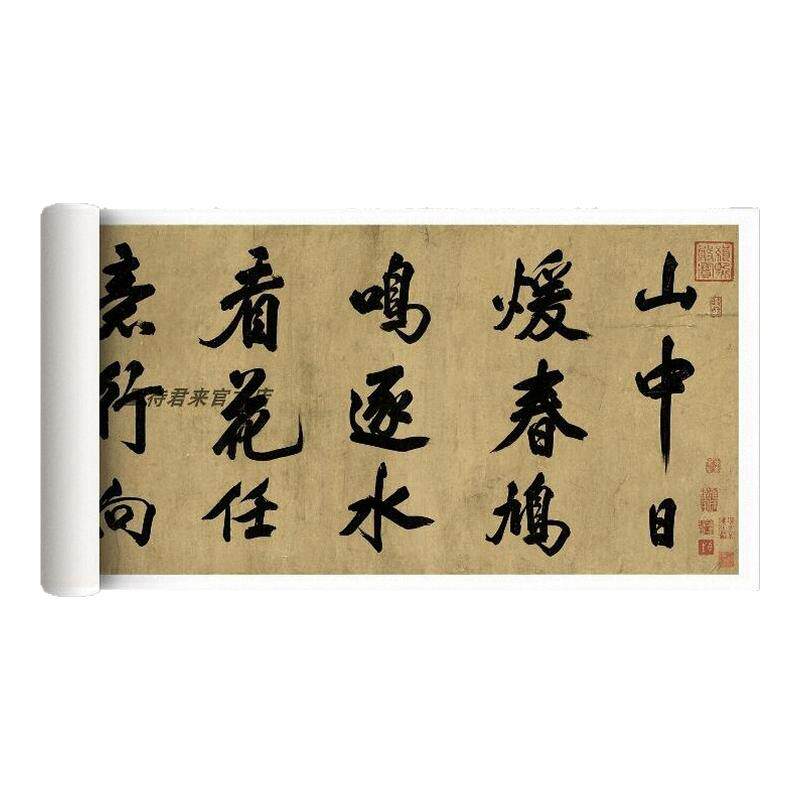 山中日
煖春鳩
鳴逐水
看花任
意行向
待君来官
店